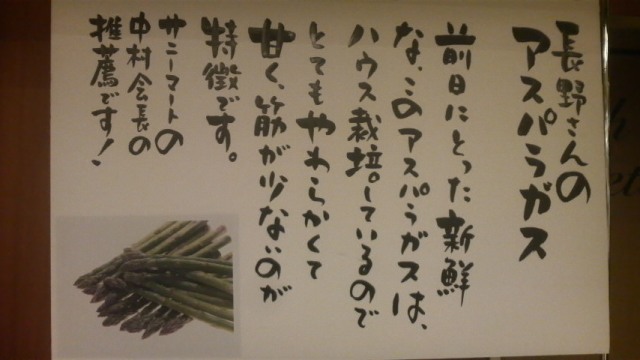 長野さんの
アスパラガス
前日にとった新鮮
な、このアスパラガスは、
ハウス栽培しているので
とてもやわらかくて
甘く、筋が少ないのが
特徴です。
サニーマートの
中村会長の
推薦です!